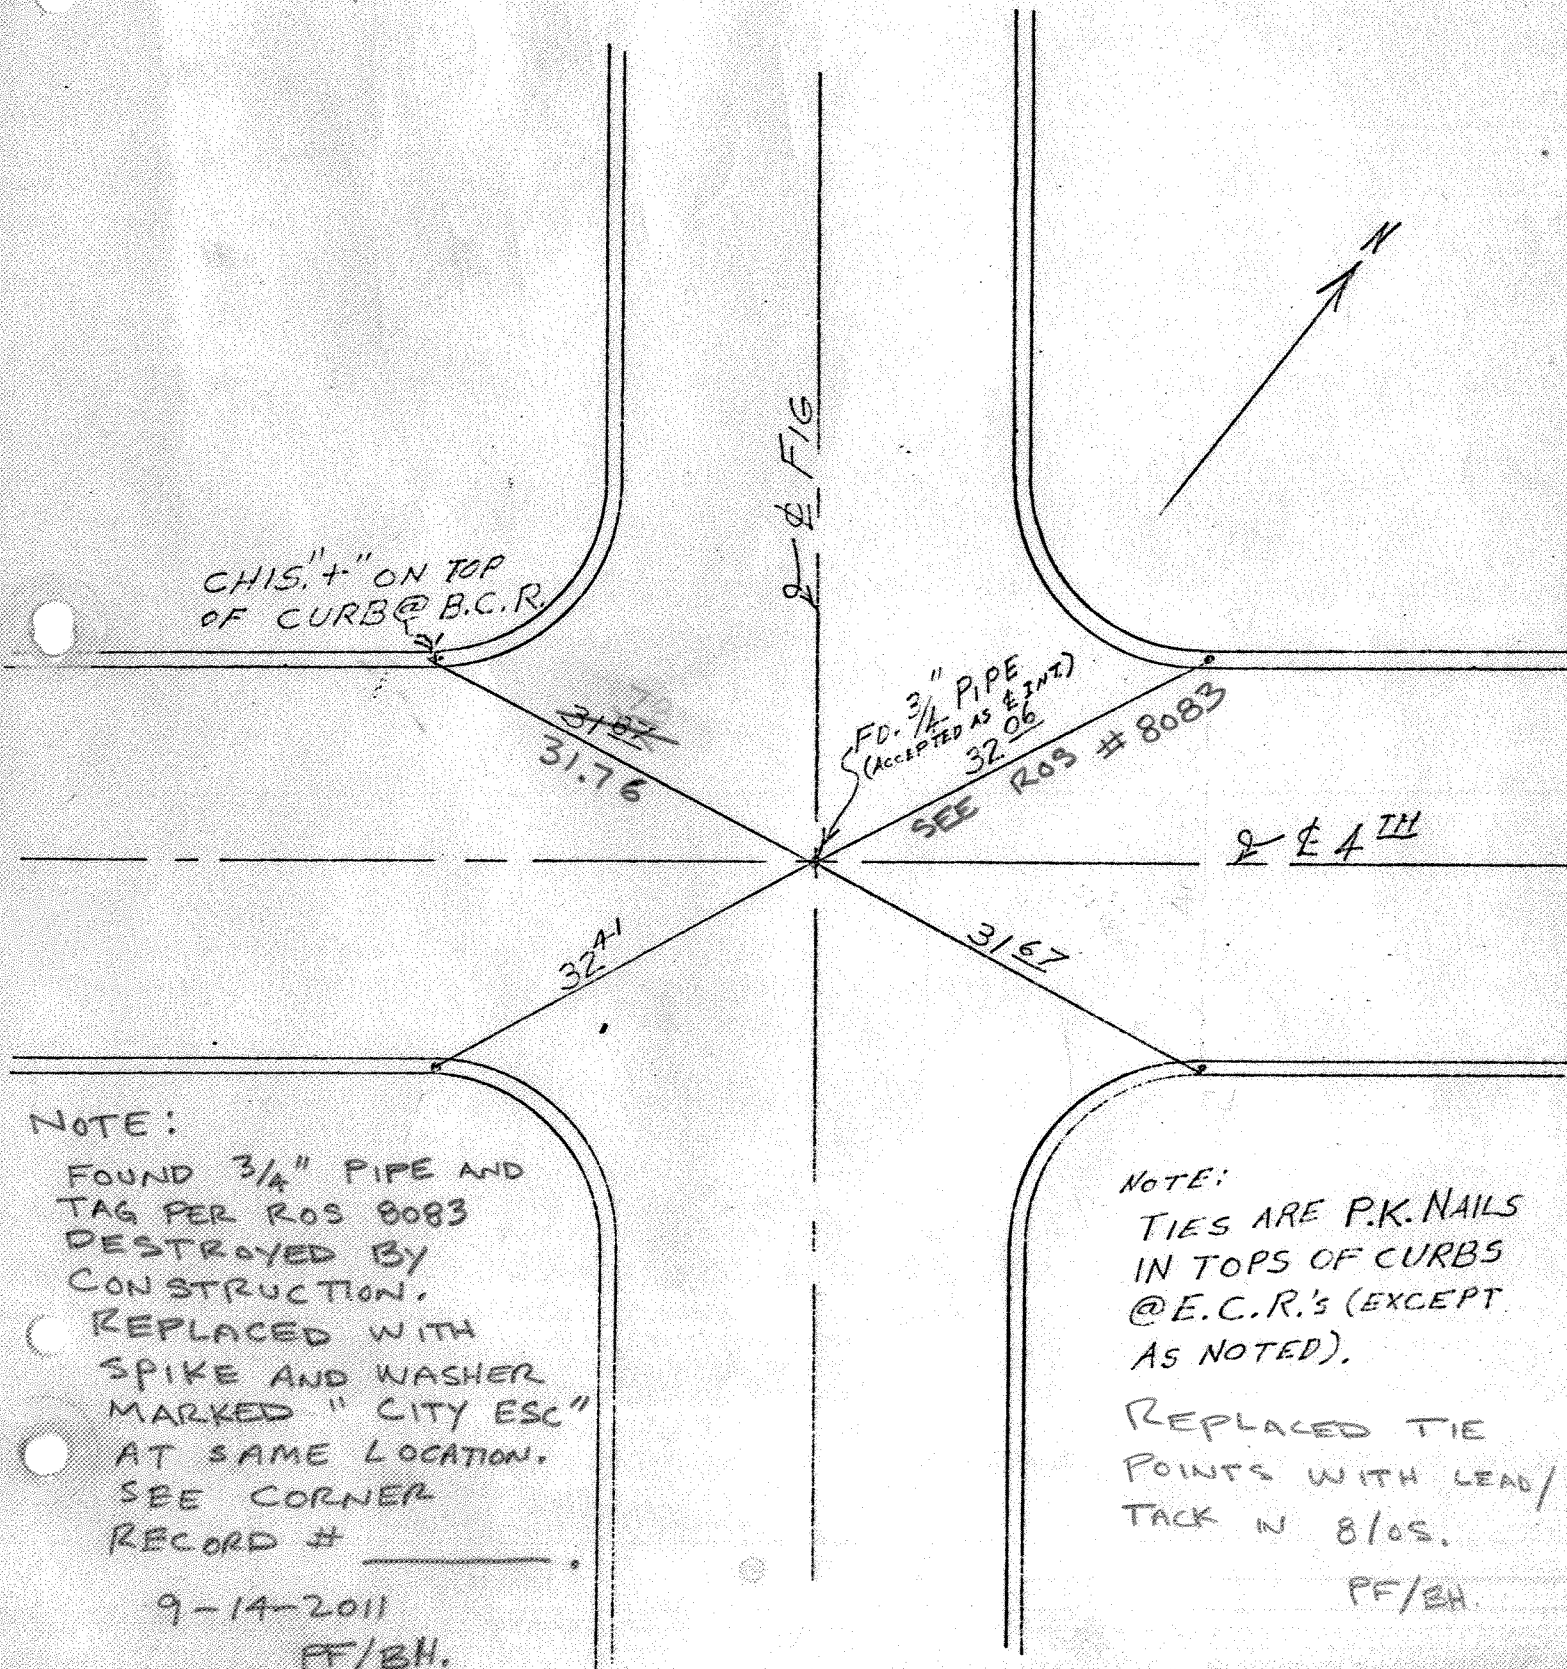 N
℄ FIG
CHIS. "+" ON TOP
OF CURB @ B.C.R.
FD. 3/4" PIPE
(ACCEPTED AS ℄ INT.)
3187
31.76
32.06
SEE ROS # 8083
℄ 4TH
32 41
31 67
NOTE:
FOUND 3/4" PIPE AND
TAG PER ROS 8083
DESTROYED BY
CONSTRUCTION.
REPLACED WITH
SPIKE AND WASHER
MARKED "CITY ESC"
AT SAME LOCATION.
SEE CORNER
RECORD # ________.
9-14-2011
PF/BH.
NOTE:
TIES ARE P.K. NAILS
IN TOPS OF CURBS
@ E.C.R.'s (EXCEPT
AS NOTED).
REPLACED TIE
POINTS WITH LEAD/
TACK IN 8/05.
PF/BH.